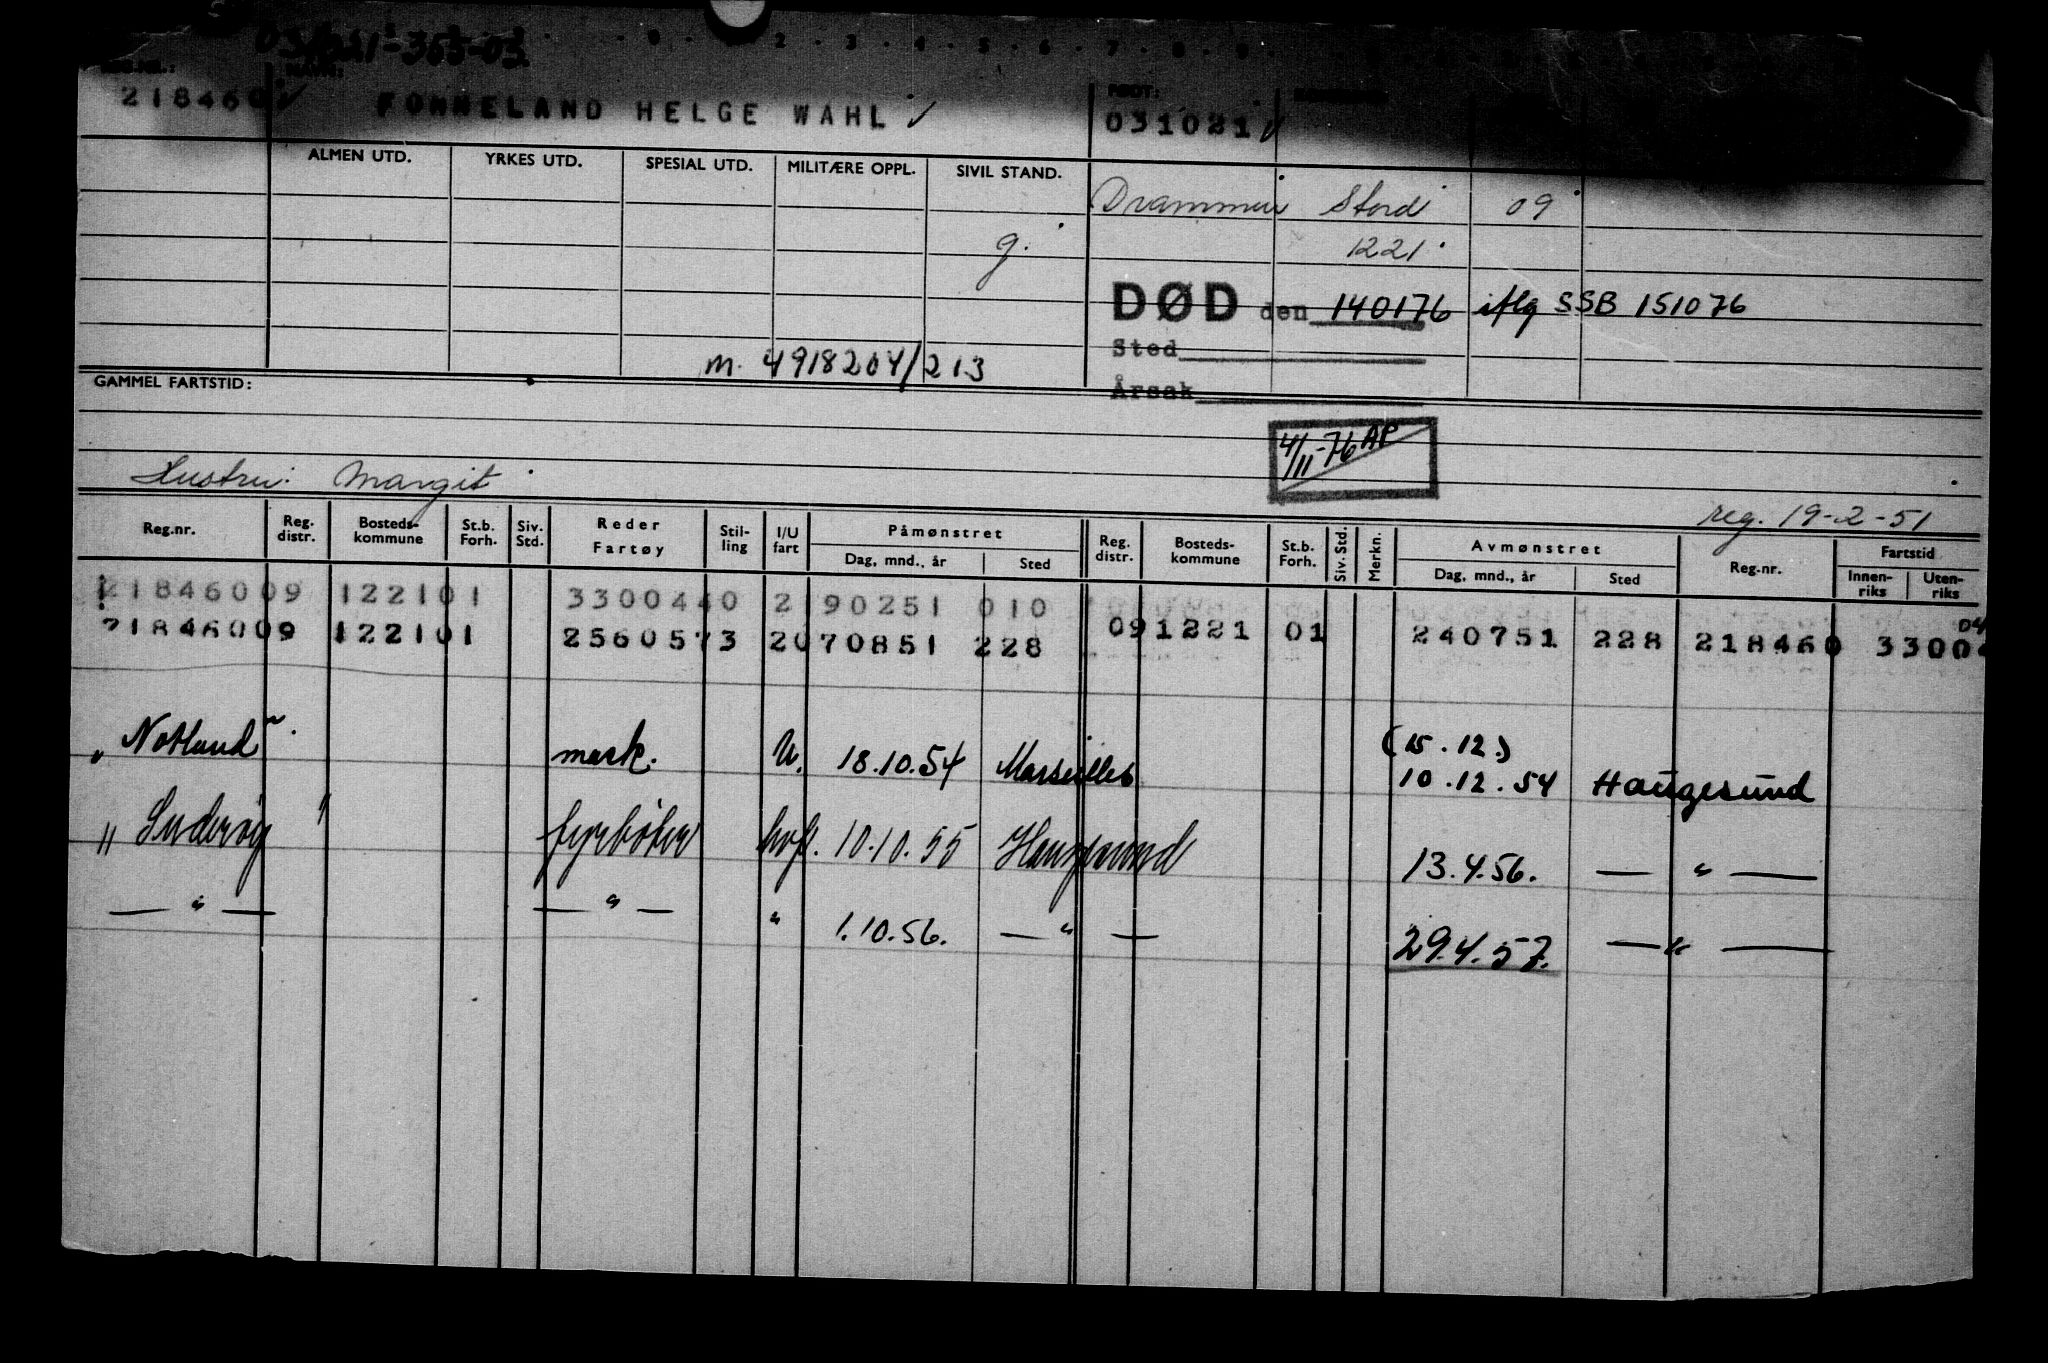 031021-363-03
REG.NR.: NAVN: FØDT:
218460 FONNELAND HELGE WAHL 031021
ALMEN UTD. YRKES UTD. SPESIAL UTD. MILITÆRE OPPL. SIVIL STAND.
Drammen Stord 09
g. 1221
DØD den 140176 iflg SSB 151076
Sted
m. 4918204/213
Årsak
GAMMEL FARTSTID:
4/11-76 AP
Hustru: Margit
reg. 19-2-51
Reg.nr. Reg. distr. Bosteds- kommune St.b. Forh. Siv. Std. Reder Fartøy Stil- ling I/U fart Påmønstret Dag, mnd., år Sted Reg. distr. Bosteds- kommune St.b. Forh. Siv. Std. Merkn. Avmønstret Dag, mnd., år Sted Reg.nr. Fartstid Innen- riks Uten- riks
21846009 122101 3300440 2190251 010
21846009 122101 2560573 2070851 228 091221 01 240751 228 218460 33004 04
(15.12.)
"Notland" mask. U. 18.10.54 Marseilles 10.12.54 Haugesund
"Suderøy" fyrbøter hvf. 10.10.55 Haugesund 13.4.56. — " —
— " — — " — " 1.10.56. — " — 29.4.57. — " —